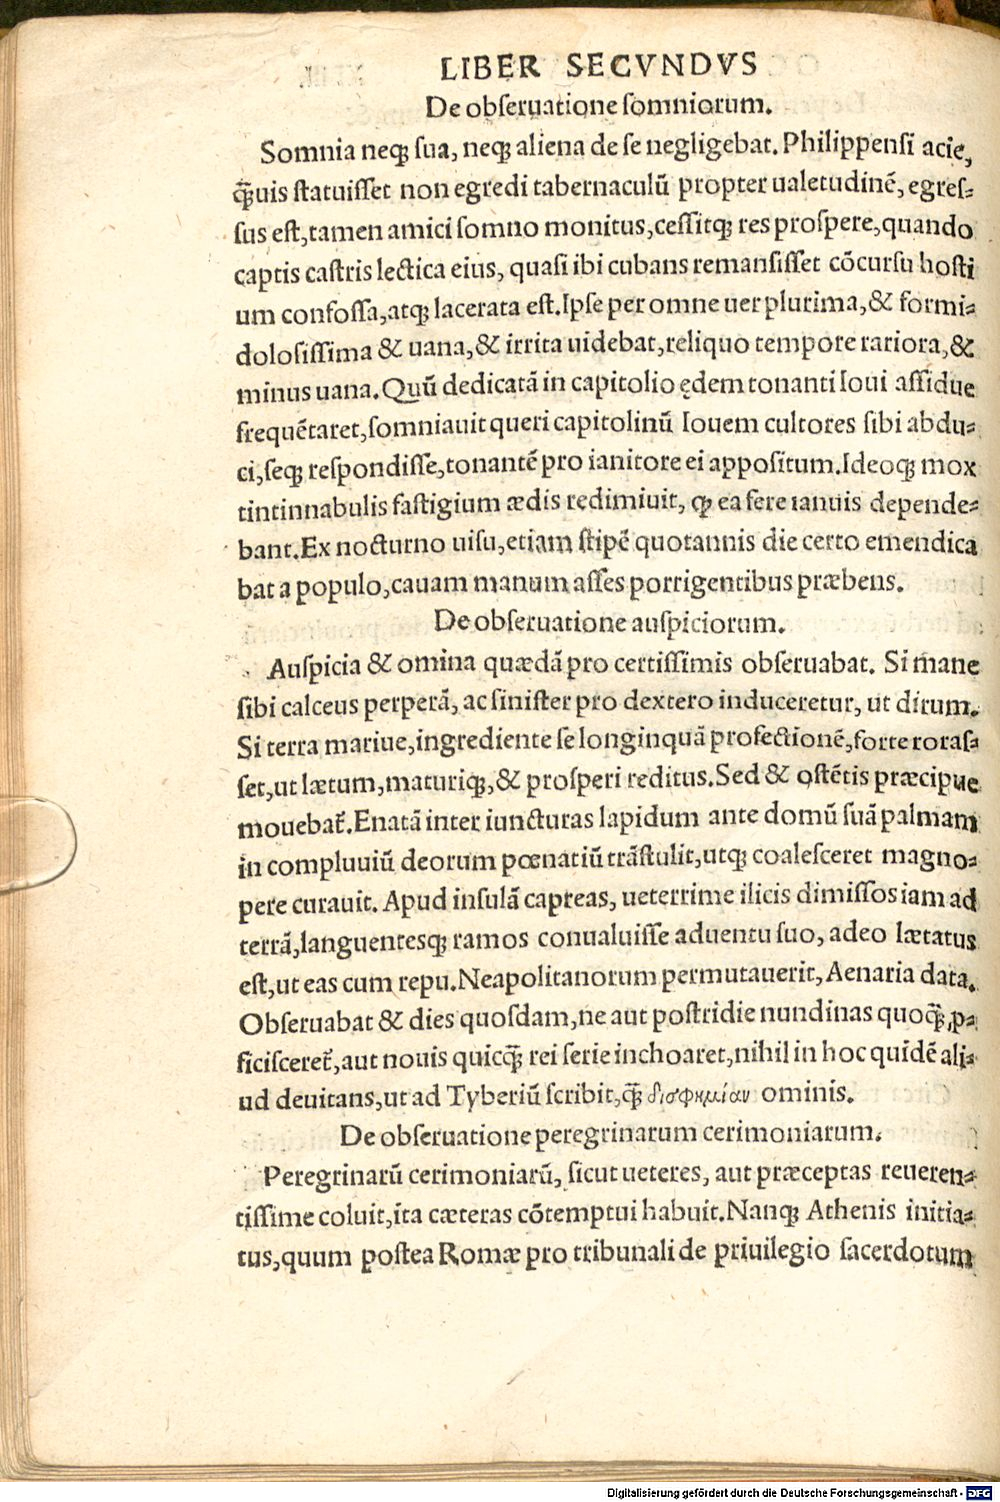 LIBER SECVNDVS
De obſeruatione ſomniorum.
Somnia neqꝫ ſua, neqꝫ aliena de ſe negligebat. Philippenſi acie,
q̃uis ſtatuiſſet non egredi tabernaculũ propter ualetudinẽ, egreſ⸗
ſus eſt, tamen amici ſomno monitus, ceſſitqꝫ res proſpere, quando
captis caſtris lectica eius, quaſi ibi cubans remanſiſſet cõcurſu hoſti
um confoſſa, atqꝫ lacerata eſt. Ipſe per omne uer plurima, & formi⸗
doloſiſſima & uana, & irrita uidebat, reliquo tempore rariora, &
minus uana. Quũ dedicatã in capitolio ędem tonanti Ioui aſſidue
frequẽtaret, ſomniauit queri capitolinũ Iouem cultores ſibi abdu⸗
ci, ſeqꝫ reſpondiſſe, tonantẽ pro ianitore ei appoſitum. Ideoqꝫ mox
tintinnabulis faſtigium ædis redimiuit, ꝙ ea fere ianuis depende⸗
bant. Ex nocturno uiſu, etiam ſtipẽ quotannis die certo emendica
bat a populo, cauam manum aſſes porrigentibus præbens.
De obſeruatione auſpiciorum.
Auſpicia & omina quædã pro certiſſimis obſeruabat. Si mane
ſibi calceus perperã, ac ſiniſter pro dextero induceretur, ut dirum.
Si terra mariue, ingrediente ſe longinquã profectionẽ, forte roraſ⸗
ſet, ut lætum, maturiqꝫ, & proſperi reditus. Sed & oſtẽtis præcipue
mouebat̃. Enatã inter iuncturas lapidum ante domũ ſuã palmam
in compluuiũ deorum pœnatiũ trãſtulit, utqꝫ coaleſceret magno⸗
pere curauit. Apud inſulã capreas, ueterrime ilicis dimiſſos iam ad
terrã, languentesqꝫ ramos conualuiſſe aduentu ſuo, adeo lætatus
eſt, ut eas cum repu. Neapolitanorum permutauerit, Aenaria data.
Obſeruabat & dies quoſdam, ne aut poſtridie nundinas quoq̃, ꝓ⸗
ficiſceret̃, aut nouis quicq̃ rei ſerie inchoaret, nihil in hoc quidẽ ali⸗
ud deuitans, ut ad Tyberiũ ſcribit, q̃ δισφημίαν ominis.
De obſeruatione peregrinarum cerimoniarum.
Peregrinarũ cerimoniarũ, ſicut ueteres, aut præceptas reueren⸗
tiſſime coluit, ita cæteras cõtemptui habuit. Nanqꝫ Athenis initia⸗
tus, quum poſtea Romæ pro tribunali de priuilegio ſacerdotum
Digitalisierung gefördert durch die Deutsche Forschungsgemeinschaft - DFG